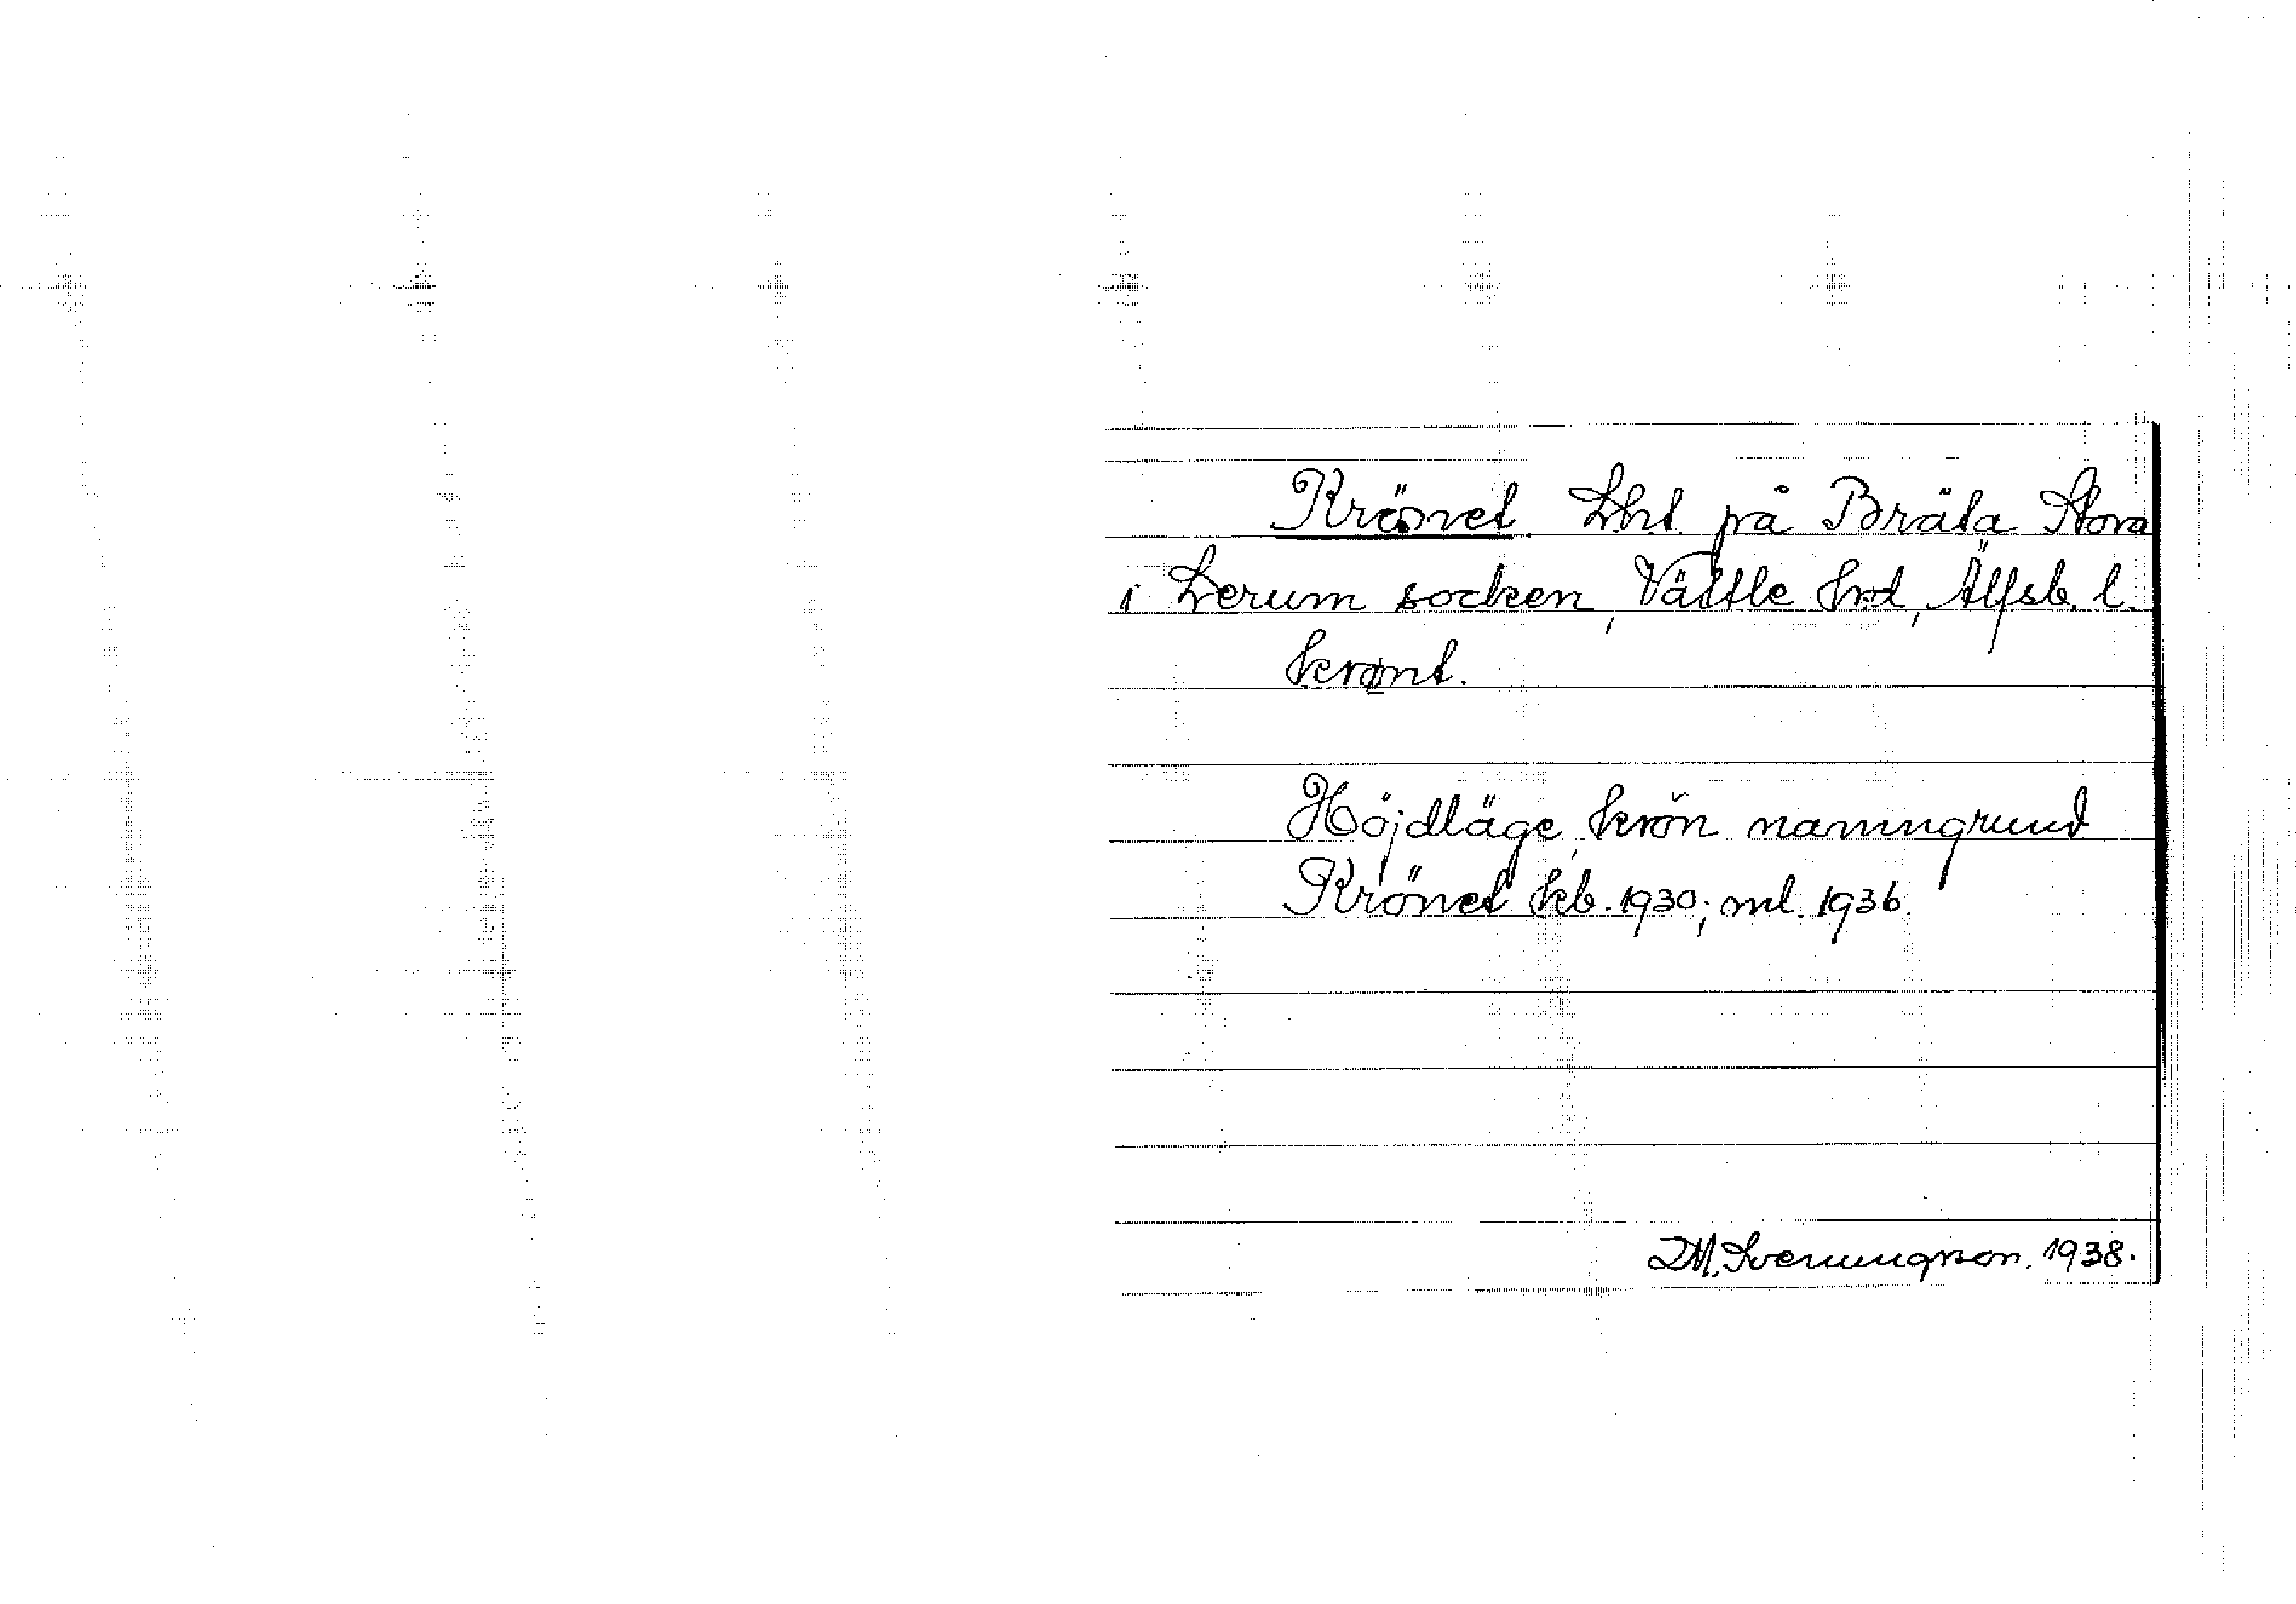 Krönet. Lht. på Bråta Stora
i Lerum socken, Vättle hrd, Älfsb. l.
krønt.
Höjdläge, krön namngrund
Krönet kb. 1930; ml. 1936.
D.M. Svenungsson. 1938.